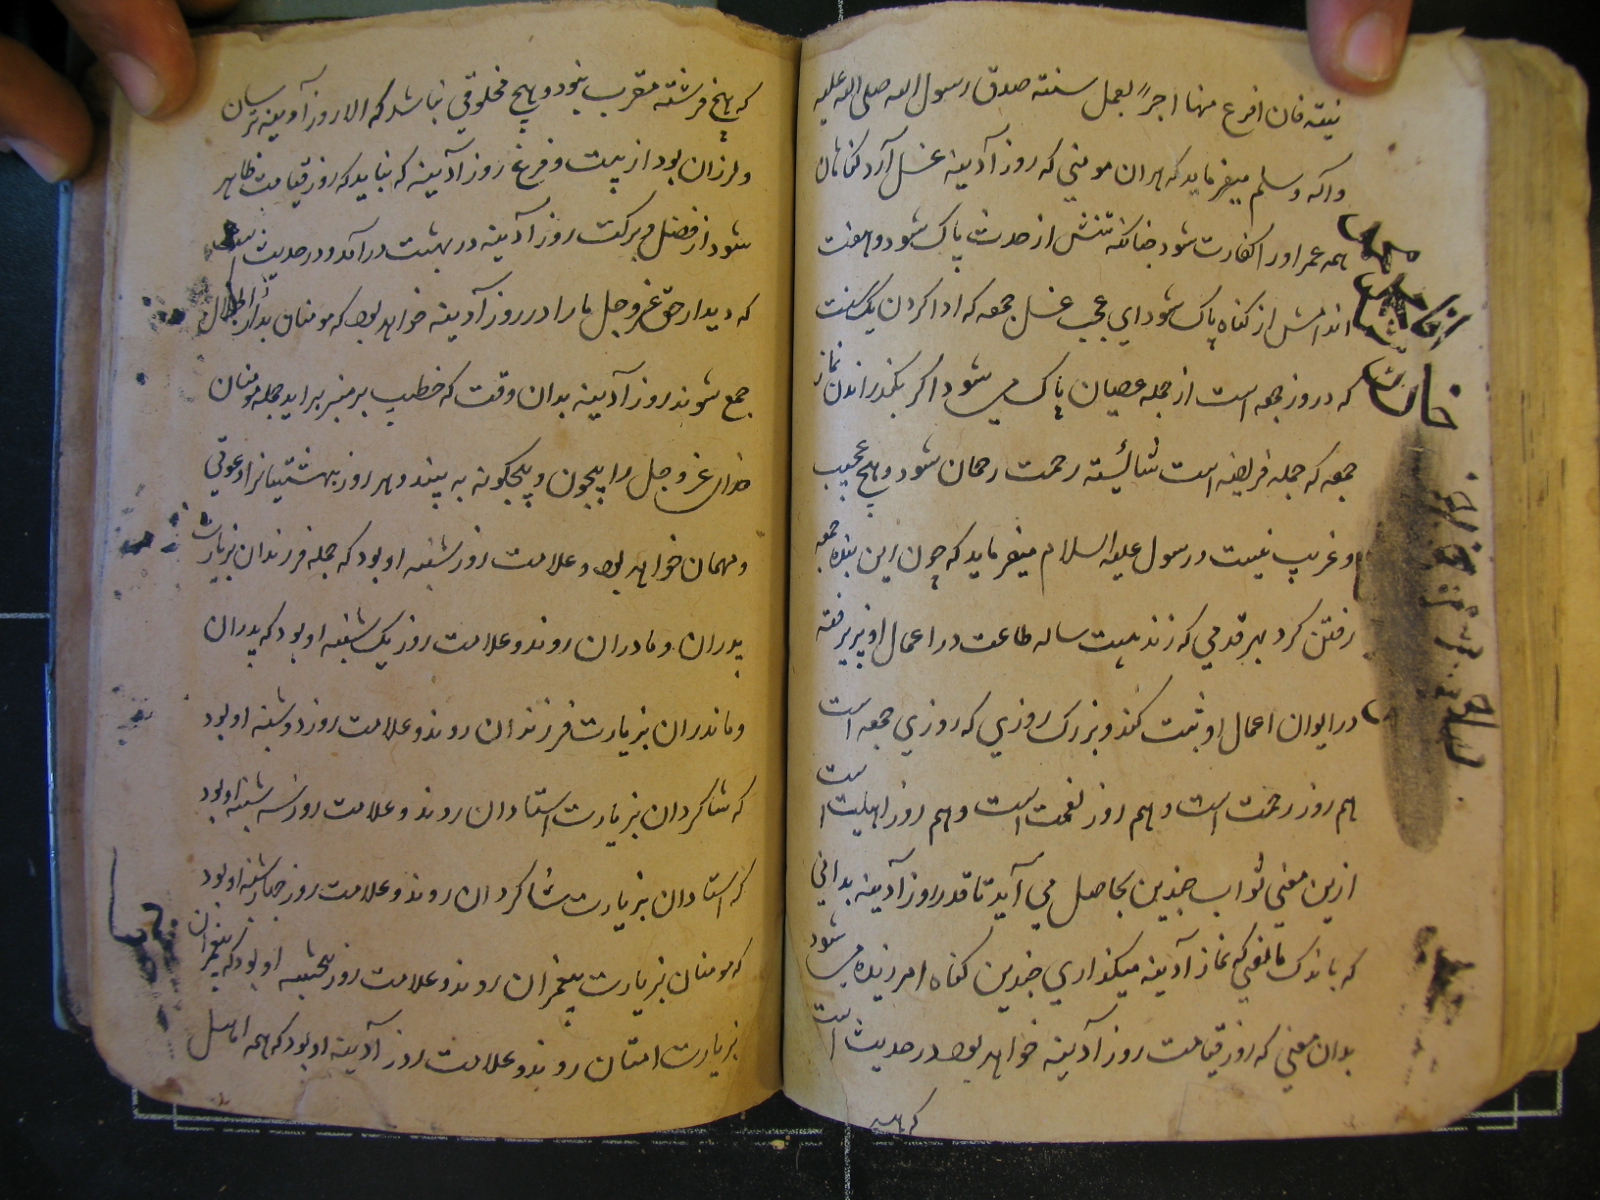 نیته فان افرغ منها اجراً بعمل سنته صدق رسول الله صلی الله علیه
واله وسلم میفرماید که هران مومنی که روز آدینه غسل آرد کناهان
همه عمر اورا کفارت شود چنانکه تنش از حدث پاک شود و هفت
اندامش از کناه پاک شود ای عجب غسل جمعه که ادا کردن یک سنت
که در روز جمعه است از جمله عصیان پاک می شود اکر بکذراند نماز
جمعه که جمله فریضه است شائیسته رحمت رحمان شود و هیچ عجیب
و غریب نیست و رسول علیه السلام میفرماید که چون این بنده جمعه
رفتن کرد بهر قدمی که زند بیست ساله طاعت در اعمال او پزیرفته
در ایوان اعمال او ثبت کنند و بزرک روزی که روزی جمعه است
هم روز رحمت است و هم روز نعمت است و هم روز است
ازین معنی ثواب چندین بحاصل می آید تا قدر روز آدینه بدانی
که باندک مانعی که نماز آدینه میکذاری چندین کناه امرزیده می شود
بدان معنی که روز قیامت روز آدینه خواهد بود در حدیث است
که هیچ
خان
که هیچ فرشته مقرب نبود و هیچ مخلوقی نباشد که الا روز آدینه ترسان
و لرزان بود از هیبت و فزع روز آدینه که نباید که روز قیامت ظاهر
شود از فضل و برکت روز آدینه در بهشت درآمد و در حدیث
که دیدار حق عز وجل مارا در روز آدینه خواهد بود که مومنان بدار الجلال
جمع شوند روز آدینه بدان وقت که خطیب بر منبر براید جمله مومنان
خدای عز وجل را بیچون و بیچکونه به بینند و هر روز بهشتیانرا دعوتی
و مهمان خواهد بود و علامت روز شنبه او بود که جمله فرزندان بزیارت
پدران و مادران روند و علامت روز یک شنبه او بود که پدران
و مادران بزیارت فرزندان روند و علامت روز دوشنبه او بود
که شاکردان بزیارت استادان روند و علامت روز سه شنبه او بود
که استادان بزیارت شاکردان روند و علامت روز چهار شنبه او بود
که مومنان بزیارت پیغمبران روند و علامت روز پنجشنبه او بود که پیغمبران
بزیارت امتان روند و علامت روز آدینه او بود که همه اهل